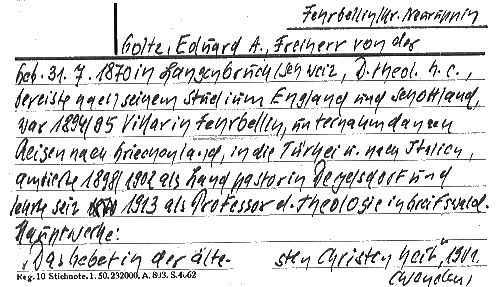 Fehrbellin/Kr. Neuruppin
Goltz, Eduard A., Freiherr von der
Geb. 31. 7. 1870 in Langenbruck/Schweiz, D. theol. h. c.,
bereiste nach seinem Studium England und Schottland,
war 1894/95 Vikar in Fehrbellin, unternahm dann
Reisen nach Griechenland, in die Türkei u. nach Italien,
amtierte 1898/1902 als Landpastor in Deyelsdorf und
lehrte seit 1913 als Professor d. Theologie in Greifswald.
Hauptwerke:
„Das Gebet in der älte-
sten Christenheit", 1901.
(wenden)
Reg. 10 Stichnote. 1. 50. 292000. A. 893. S. 4. 62